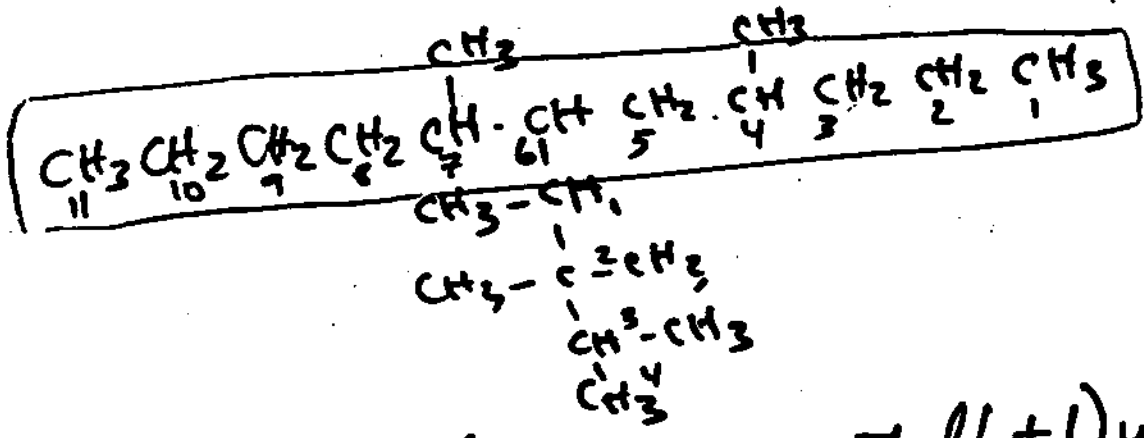 CH3 CH3
CH3 CH2 CH2 CH2 CH - CH CH2 . CH CH2 CH2 CH3
11 10 9 8 7 61 5 4 3 2 1
CH3 - CH1
CH3 - C 2 - CH2
CH 3 - CH3
CH3 4